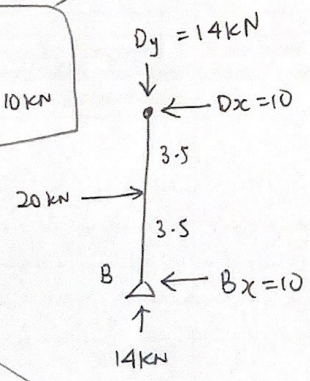 Dy = 14KN
10 KN
Dx = 10
3.5
20 KN
3.5
B
Bx = 10
14KN